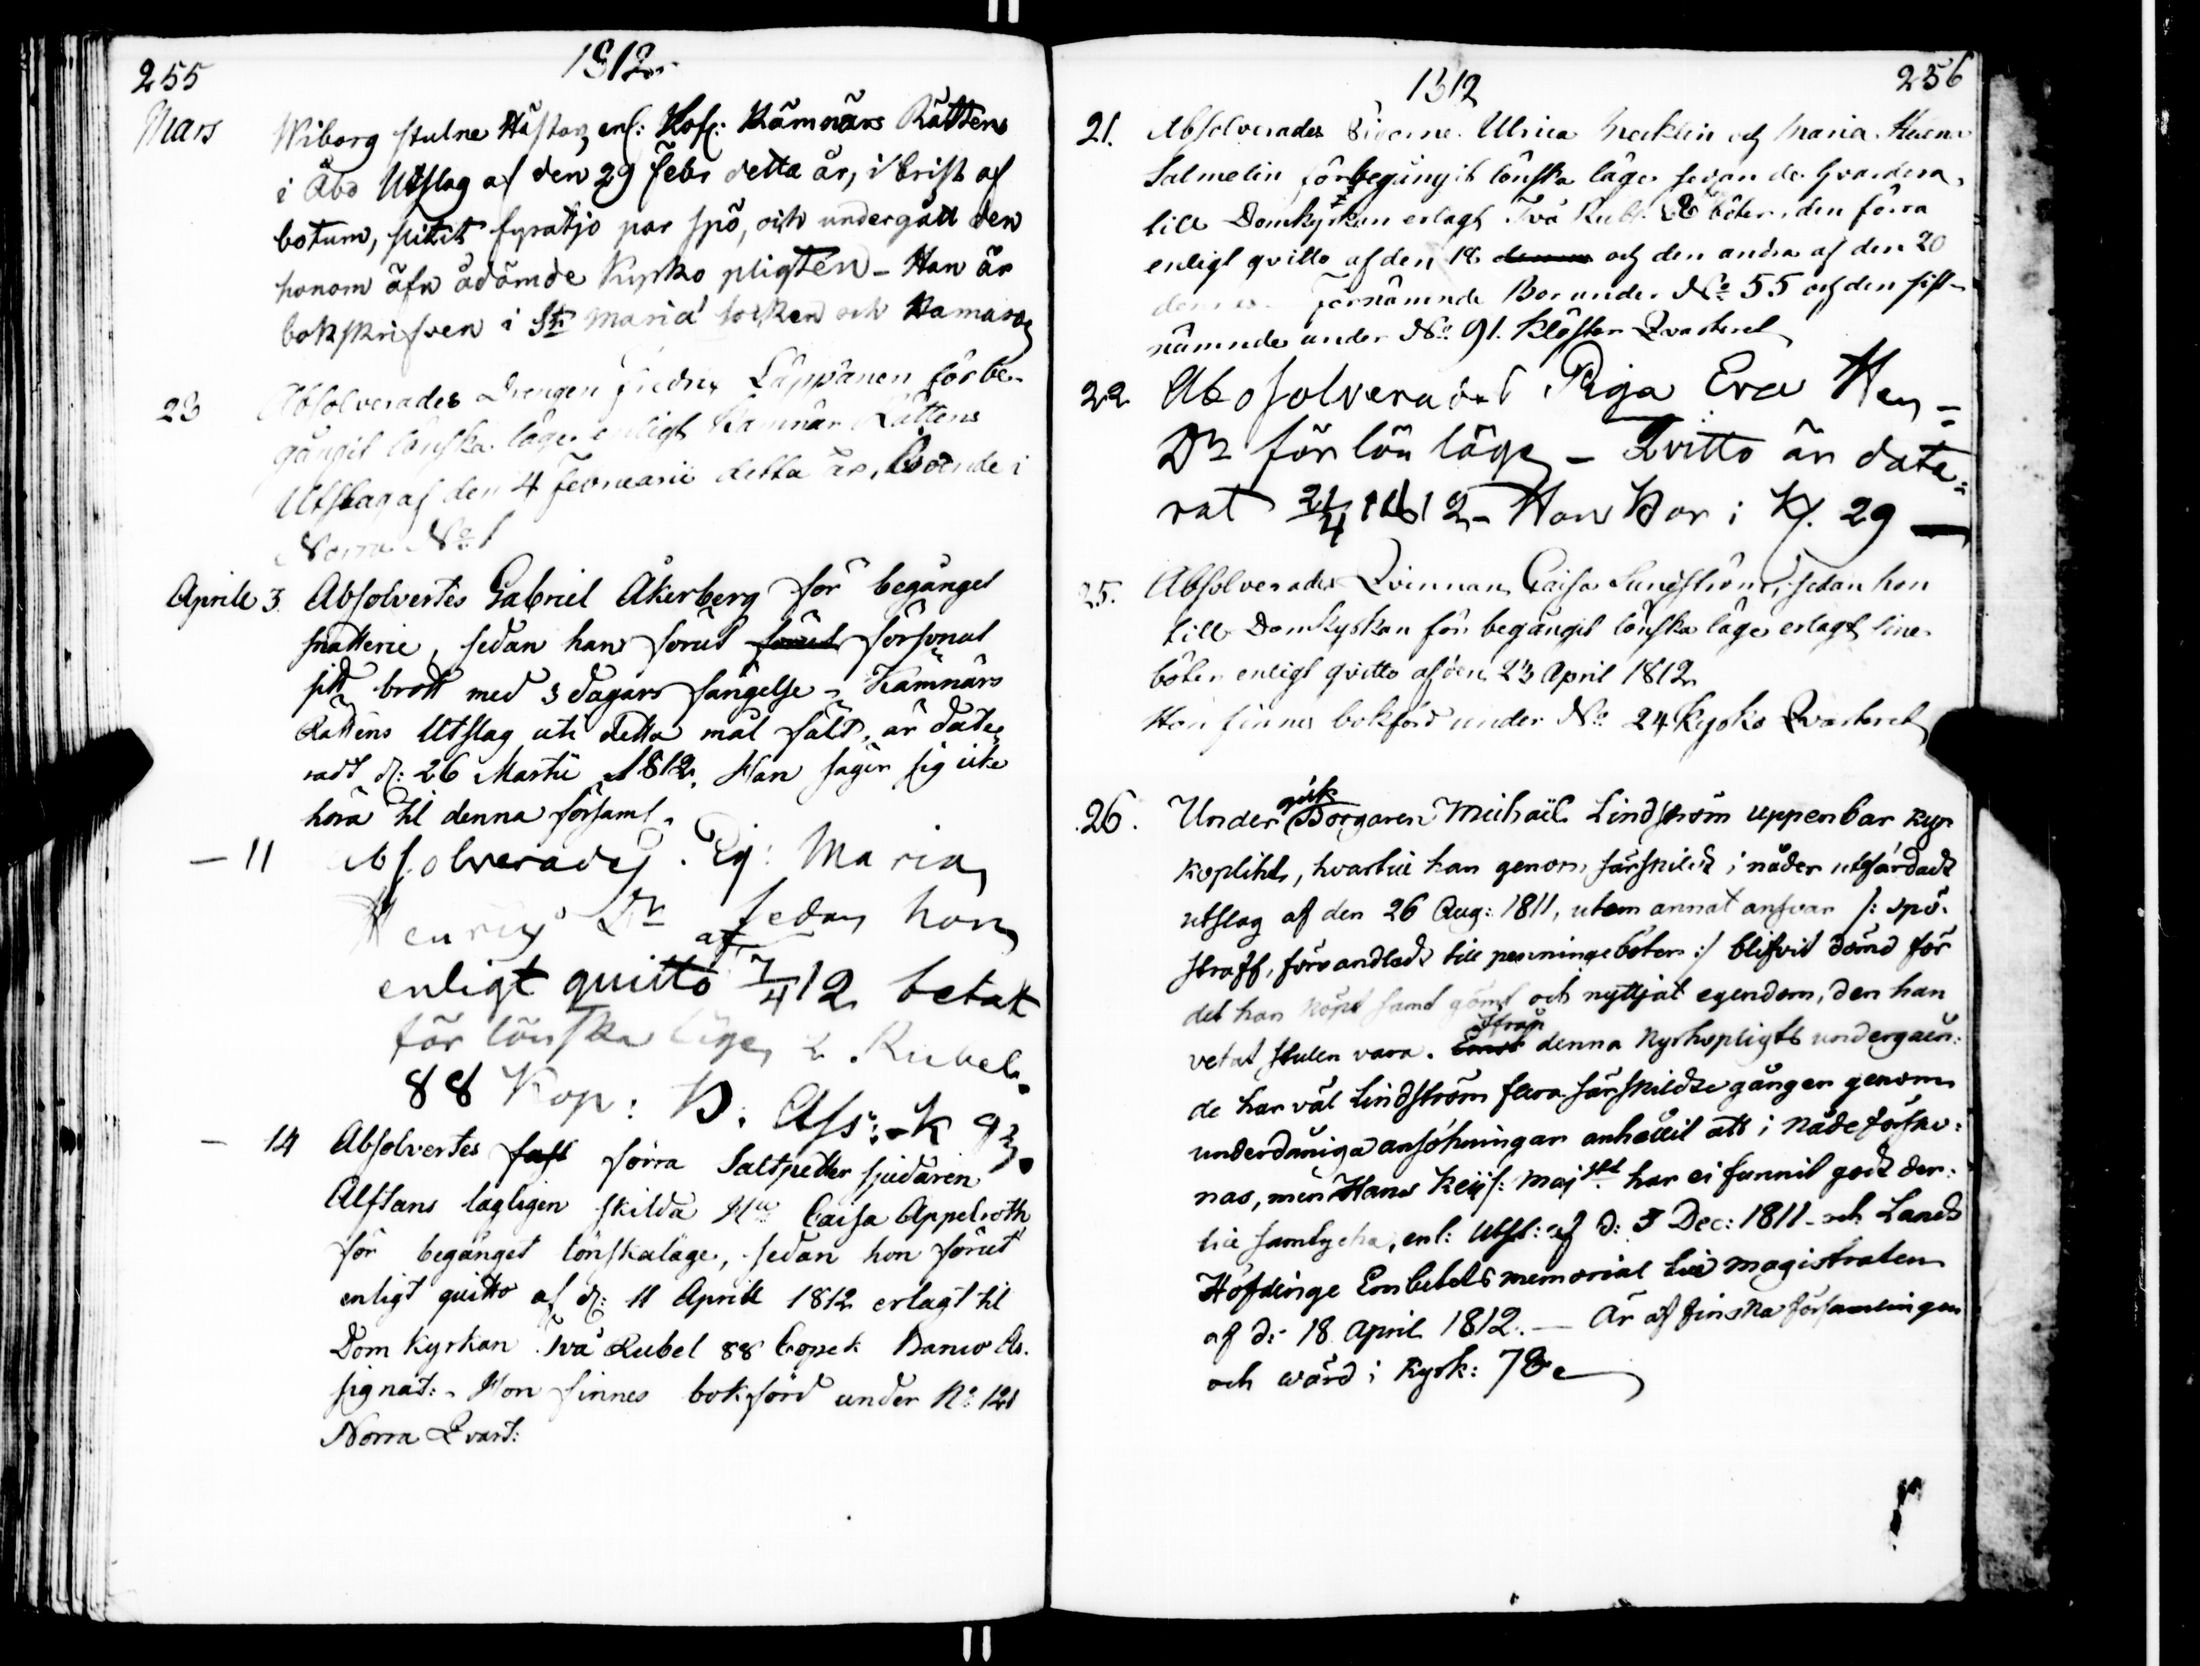 255
1812.
Mars
Wiborg stulne Hästar, enl: Hof: Kämnärs Rättens
i Åbo Utslag af den 29 Febr detta år, i brist af
botum, slitit fyratjo par spö, och undergått den
honom äfv ådömde Kyrko pligten - Han är
bokskrifven i Stꝫ Mariæ socken och
23 Absolverades Drengen Fredric Läppänen för be-
gångit lönska läge enligt Kämnär Rättens
Utslag af den 4 Februarii detta år, boende i
Norra No 1
Aprill 3. Absolvertes Gabriel Åkerberg för begånget
snatterie, sedan han förut förut försonat
sitt brott med 3 dagars fängelse - Kämnärs
Rättens Utslag uti detta mål fält, är date-
radt d: 26 Martii 1812. Han säger sig icke
höra til denna församl.
- 11 Absolverades Pig: Maria
Henrics Dr sedan hon
enligt quitto af 7/4 12 betalt
för lönska läge 2 Rubel
88 Kop: B. Ass: - K 93.
- 14 Absolvertes förra Saltpetter sjudaren
Alftans lagligen skilda Hu Caisa Appelroth
för begånget lönskaläge, sedan hon förut
enligt quitto af d: 11 Aprill 1812 erlagt til
Dom kyrkan två Rubel 88 Copek Banco As.
signat: - Hon finnes bokförd under No 121
Norra Qvart:
256
1812
21. Absolverades Pigorne Ulrica Mecklin och Maria Helena
Salmelin för begångit lönska läge sedan de hvardera
till Domkyrkan erlagt Två Rub. böter, den förra
enligt qvitto af den 18 och den andra af den 20
förnämnde Bor under No 55 och den sist-
nämnde under No 91. Klöster Qvarteret
22 Absolverades Piga Eva Hen=
Dr för lön läge - Qvitto är date=
rat 21/4 1812 - Hon Bor i K. 29 —
25. Absolverades Qvinnan Caisa Sundström, sedan hon
till Domkyrkan för begångit lönska läge erlagt sine
böter enligt qvitto af den 23 April 1812
Hon finnes bokförd under No 24 Kyrko Qvarteret
26. Under gick Borgaren Michaël Lindström uppenbar kyr
koplikt, hvartill han genom särskildt i nåder utfärdadt
utslag af den 26 Aug: 1811, utom annat ansvar /: spö-
straff, förvandladt till penningeböter :/ blifvit dömd för
det han köpt samt gömt och nyttjat egendom, den han
vetat stulen vara. Ifrån denna Kyrkopligts undergåen:
de har väl Lindström flera särskildte gånger genom
underdåniga ansökningar anhållit att i Nåde förskå:
nas, men Hans Keijs: Majstt har ei funnit godt der:
till samtycka, enl: Utsl: af d: 3 Dec: 1811 - och Lands
Höfdinge Embetets memorial till magistraten
af d: 18 April 1812. — Är af finska församlingen
och wård i Kyrk: 78